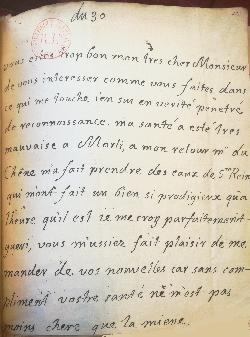 du 30
vous estes trop bon mon tres cher Monsieur
de vous interesser comme vous faites dans
ce qui me touche ien suis en verité penetré
de reconnoissance. ma santé a esté tres
mauvaise a Marli, a mon retour mr du
Chéne m'a fait prendre des eaux de Ste Rein
qui m'ont fait un bien si prodigieux qua
lheure quil est ie me croy parfaitement
gueri, vous m'ussiez fait plaisir de me
mander de vos nouvelles car sans com-
pliment vostre santé ne m'est pas
moins chere que la miene.